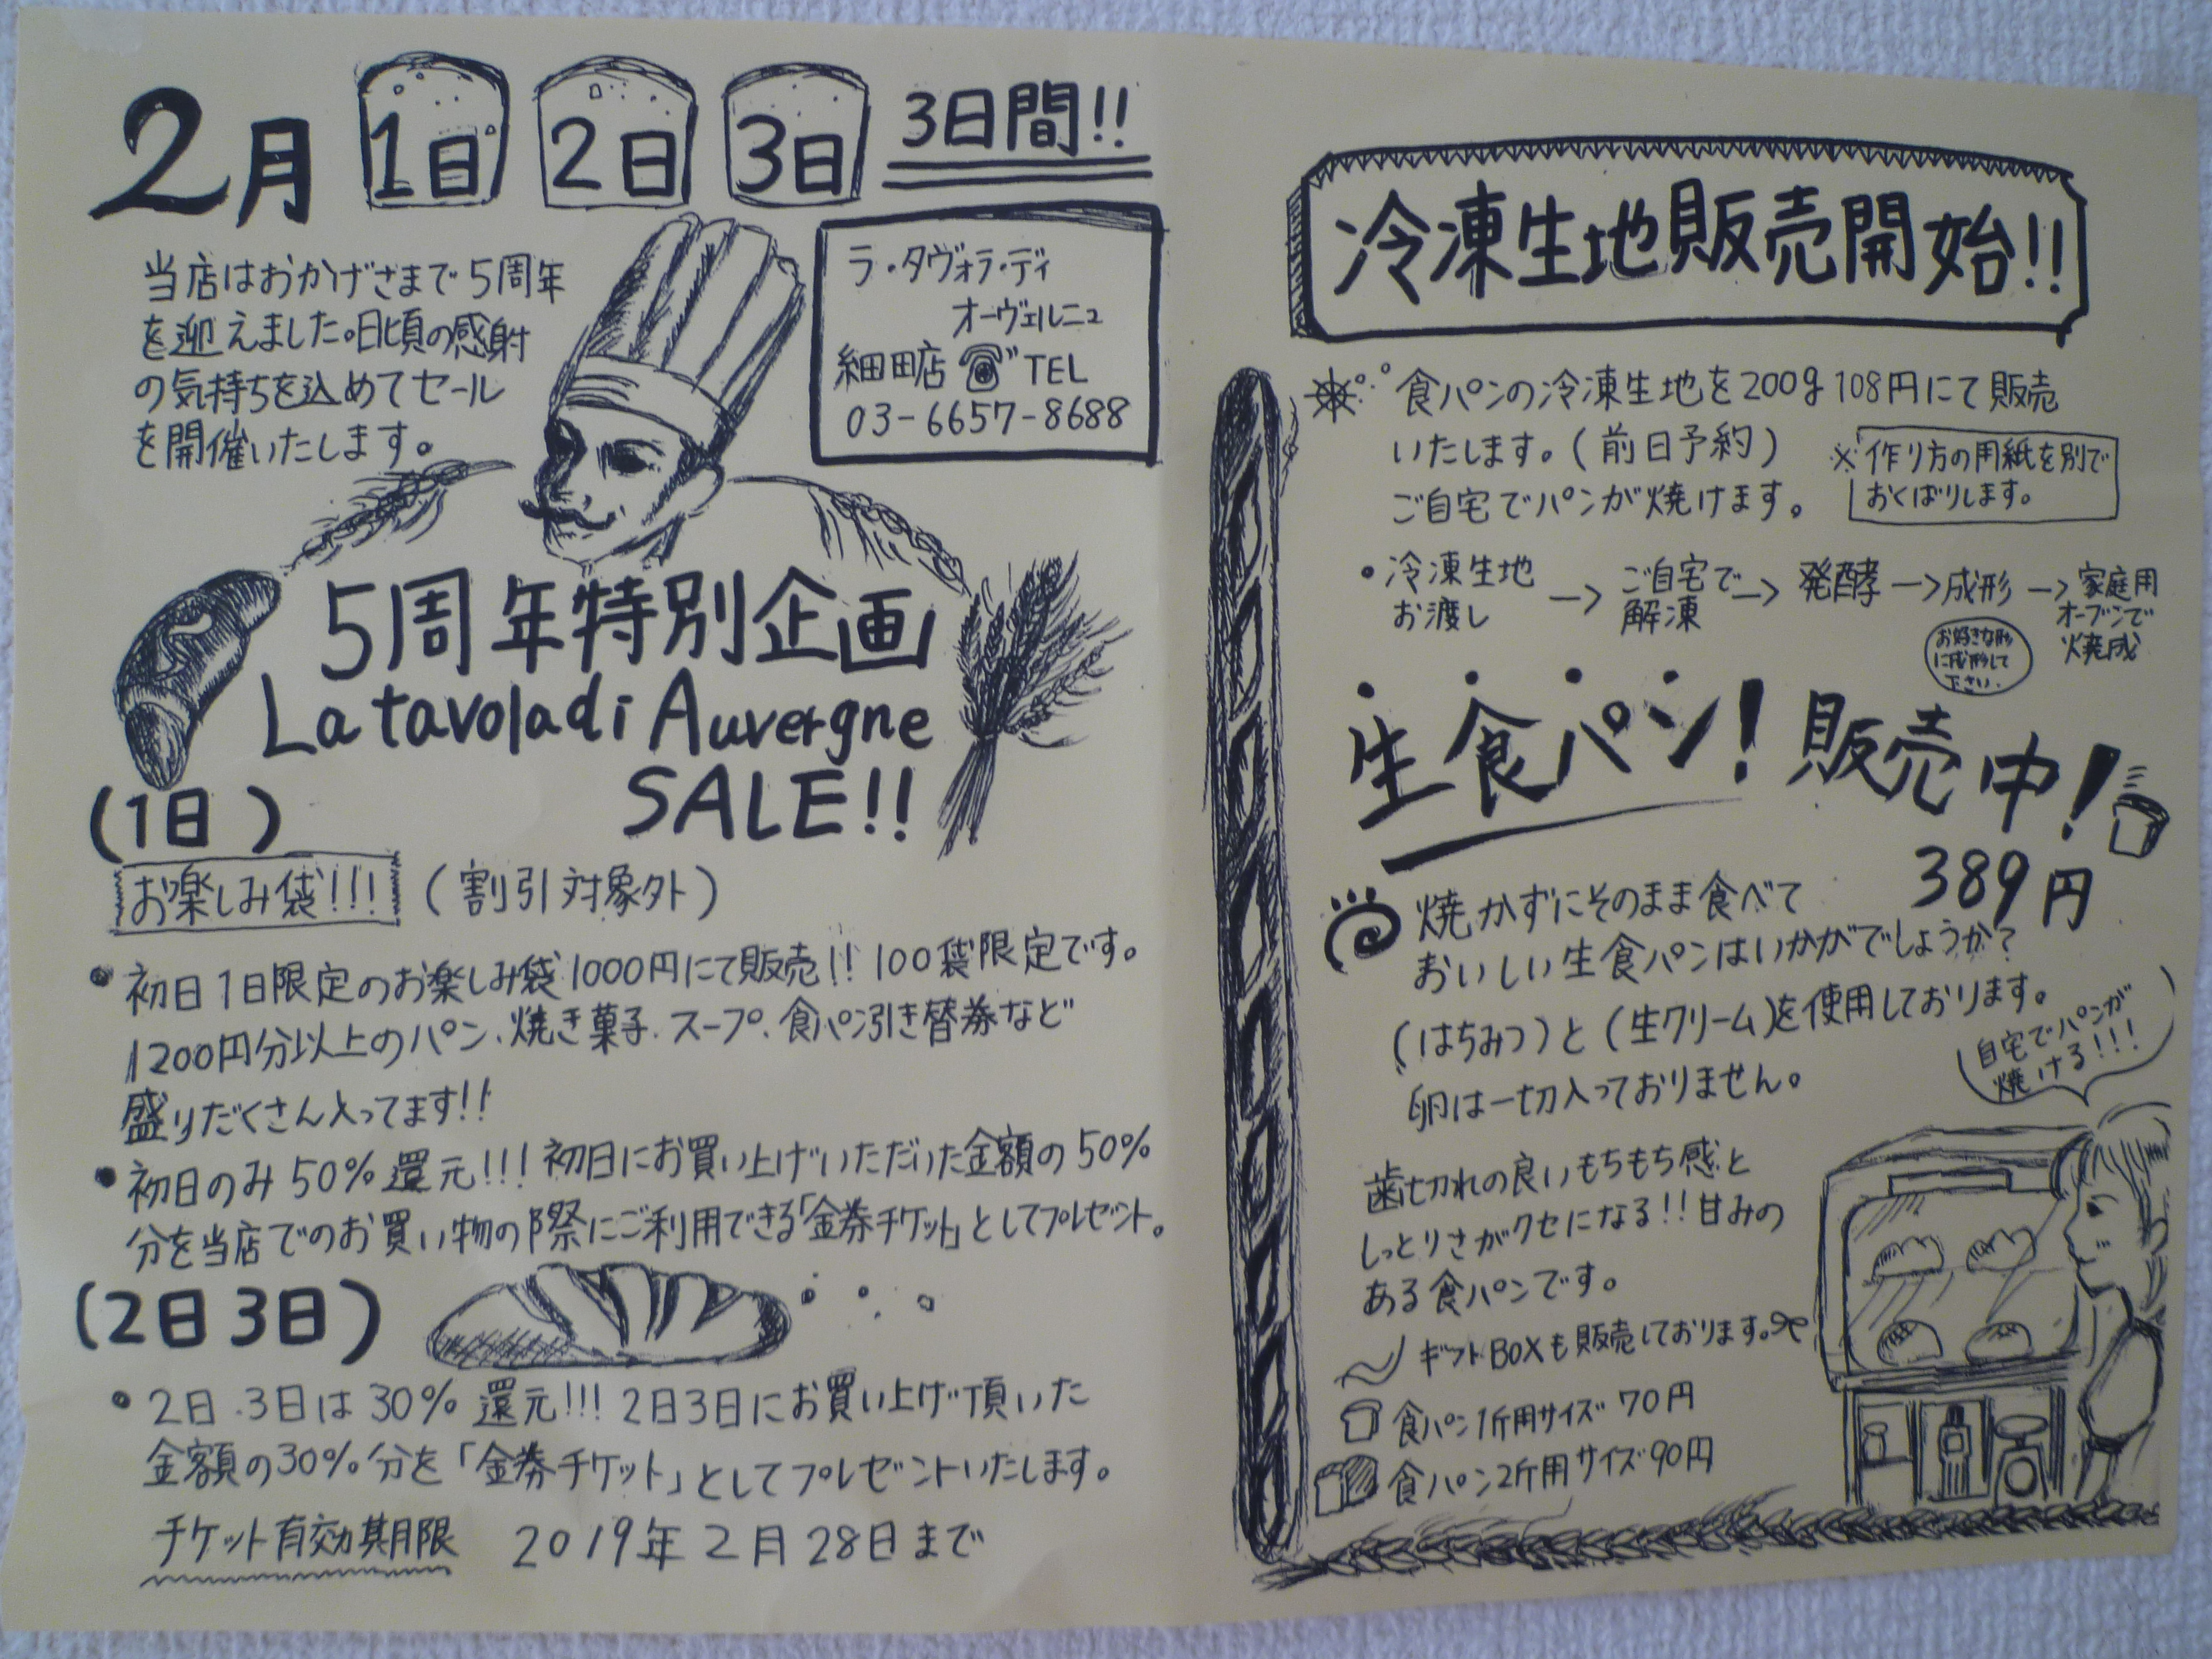 2月 1日 2日 3日 3日間!!
当店はおかげさまで5周年
を迎えました。日頃の感謝
の気持ちを込めてセール
を開催いたします。
ラ・タヴォラ・ディ
オーヴェルニュ
細田店 TEL
03-6657-8688
5周年特別企画
La tavola di Auvergne
SALE!!
(1日)
お楽しみ袋!!! (割引対象外)
•初日1日限定のお楽しみ袋1000円にて販売!! 100袋限定です。
1200円分以上のパン、焼き菓子、スープ、食パン引き替券など
盛りだくさん入ってます!!
•初日のみ50%還元!!! 初日にお買い上げいただいた金額の50%
分を当店でのお買い物の際にご利用できる「金券チケット」としてプレゼント。
(2日3日)
•2日.3日は30%還元!!! 2日3日にお買い上げ頂いた
金額の30%分を「金券チケット」としてプレゼントいたします。
チケット有効期限 2019年2月28日まで
冷凍生地販売開始!!
食パンの冷凍生地を200g108円にて販売
いたします。(前日予約)
ご自宅でパンが焼けます。
※作り方の用紙を別で
おくばりします。
•冷凍生地
お渡し
→ご自宅で
解凍
→発酵→成形→家庭用
オーブンで
焼成
お好きな形
に成形して
下さい.
生食パン!販売中!
389円
焼かずにそのまま食べて
おいしい生食パンはいかがでしょうか?
(はちみつ)と(生クリーム)を使用しております。
卵は一切入っておりません。
自宅でパンが
焼ける!!!
歯切れの良いもちもち感と
しっとりさがクセになる!!甘みの
ある食パンです。
ギフトBOXも販売しております。
食パン1斤用サイズ 70円
食パン2斤用サイズ90円